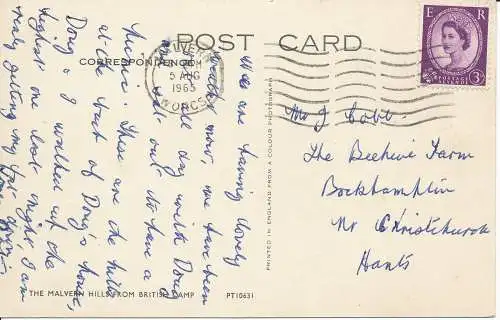 POST CARD
CORRESPONDENCE
MALVERN
5 AUG
1965
WORCS
E R
POSTAGE
REVENUE
3D
We are having lovely
weather now, we have been
all day with Doug
out, to have a
picnic. These are the hills
at the back of Doug's house,
Doug & I walked up the
highest one last night, I am
really getting my
PRINTED IN ENGLAND FROM A COLOUR PHOTOGRAPH
Mr J Cobb.
The Beehive Farm
Bockhampton
Nr Christchurch
Hants
THE MALVERN HILLS FROM BRITISH CAMP PT10631